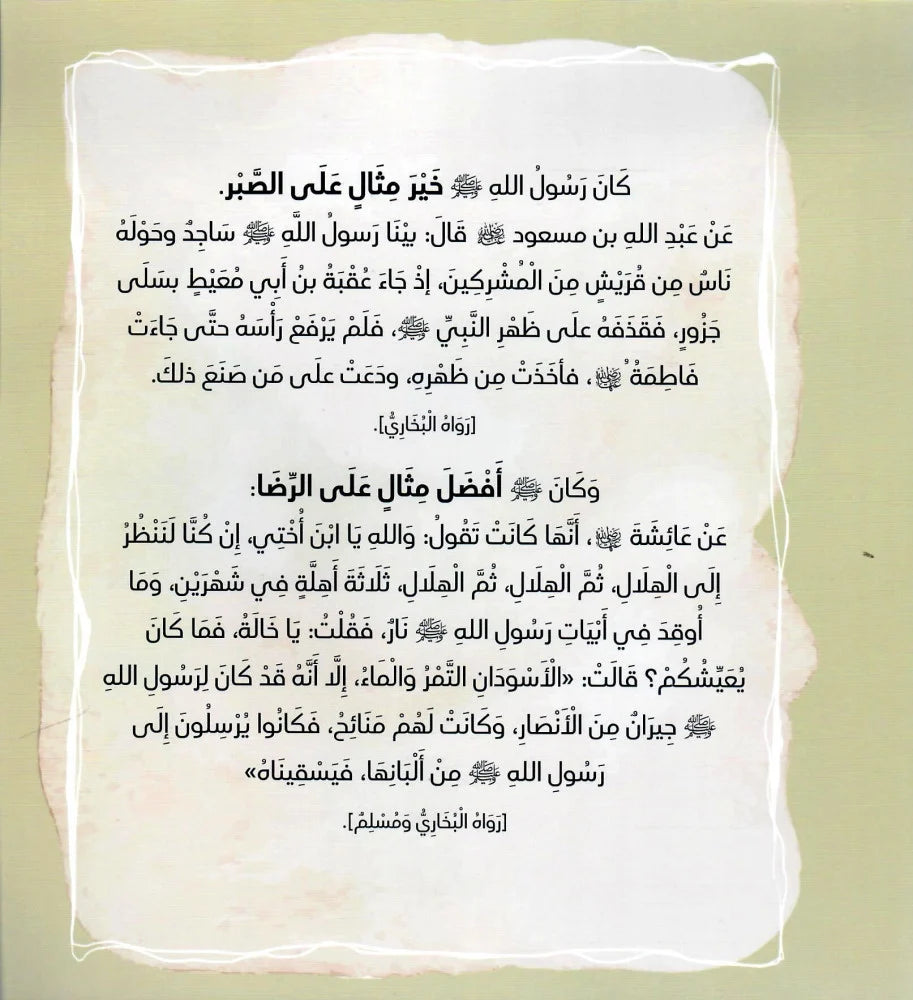 كَانَ رَسُولُ اللهِ ﷺ خَيْرَ مِثَالٍ عَلَى الصَّبْرِ.
عَنْ عَبْدِ اللهِ بن مسعود رضي الله عنه قَالَ: بيْنَا رَسولُ اللَّهِ ﷺ سَاجِدٌ وحَوْلَهُ
نَاسٌ مِن قُرَيْشٍ مِنَ الْمُشْرِكِينَ، إذْ جَاءَ عُقْبَةُ بنُ أَبِي مُعَيْطٍ بسَلَى
جَزُورٍ، فَقَذَفَهُ علَى ظَهْرِ النَّبيِّ ﷺ، فَلَمْ يَرْفَعْ رَأْسَهُ حتَّى جَاءَتْ
فَاطِمَةُ رضي الله عنها، فأخَذَتْ مِن ظَهْرِهِ، ودَعَتْ علَى مَن صَنَعَ ذلكَ.
[رَوَاهُ الْبُخَارِيُّ].
وَكَانَ ﷺ أَفْضَلَ مِثَالٍ عَلَى الرِّضَا:
عَنْ عَائِشَةَ رضي الله عنها، أَنَّهَا كَانَتْ تَقُولُ: وَاللهِ يَا ابْنَ أُخْتِي، إِنْ كُنَّا لَنَنْظُرُ
إِلَى الْهِلَالِ، ثُمَّ الْهِلَالِ، ثُمَّ الْهِلَالِ، ثَلَاثَةَ أَهِلَّةٍ فِي شَهْرَيْنِ، وَمَا
أُوقِدَ فِي أَبْيَاتِ رَسُولِ اللهِ ﷺ نَارٌ، فَقُلْتُ: يَا خَالَةُ، فَمَا كَانَ
يُعَيِّشُكُمْ؟ قَالَتْ: «الْأَسْوَدَانِ التَّمْرُ وَالْمَاءُ، إِلَّا أَنَّهُ قَدْ كَانَ لِرَسُولِ اللهِ
ﷺ جِيرَانٌ مِنَ الْأَنْصَارِ، وَكَانَتْ لَهُمْ مَنَائِحُ، فَكَانُوا يُرْسِلُونَ إِلَى
رَسُولِ اللهِ ﷺ مِنْ أَلْبَانِهَا، فَيَسْقِينَاهُ»
[رَوَاهُ الْبُخَارِيُّ وَمُسْلِمٌ].